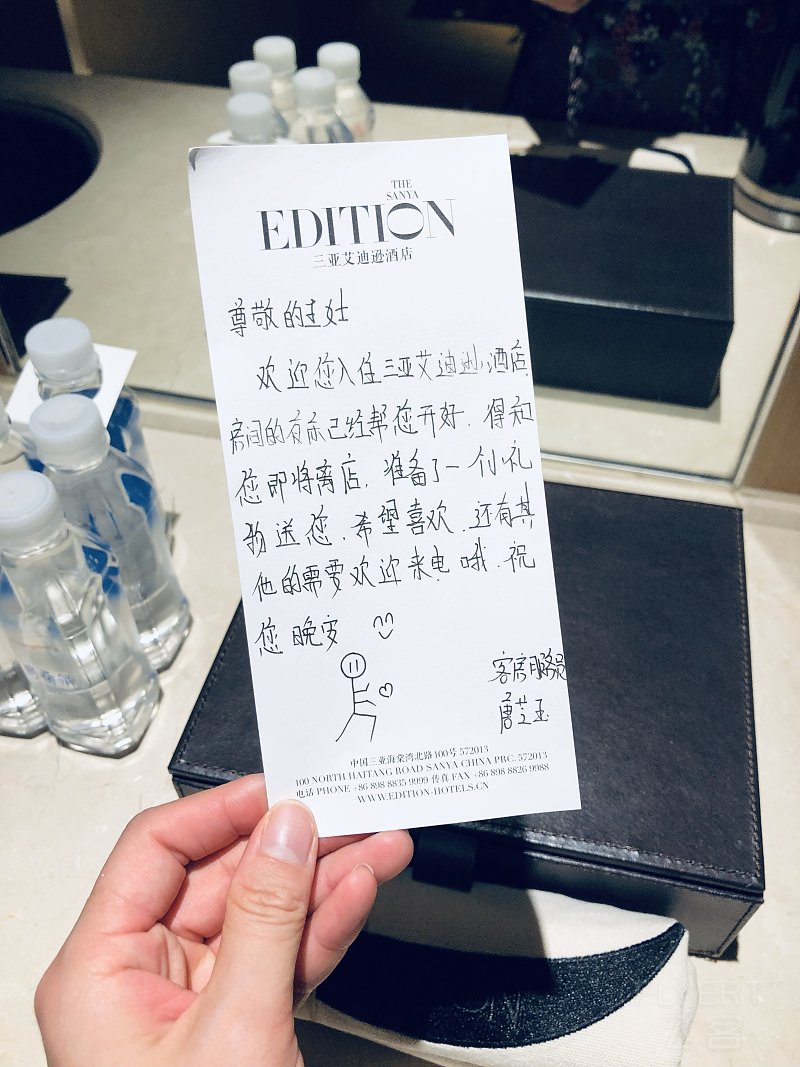 THE
SANYA
EDITION
三亚艾迪逊酒店
尊敬的女士
欢迎您入住三亚艾迪逊酒店
房间的夜床已经帮您开好.得知
您即将离店.准备了一份小礼
物送您.希望喜欢.还有其
他的需要欢迎来电哦.祝
您晚安
客房服务员
唐芝玉
中国三亚海棠湾北路100号 572013
100 NORTH HAITANG ROAD SANYA CHINA PRC. 572013
电话 PHONE +86 898 8835 9999 传真 FAX +86 898 8826 9988
WWW.EDITION-HOTELS.CN